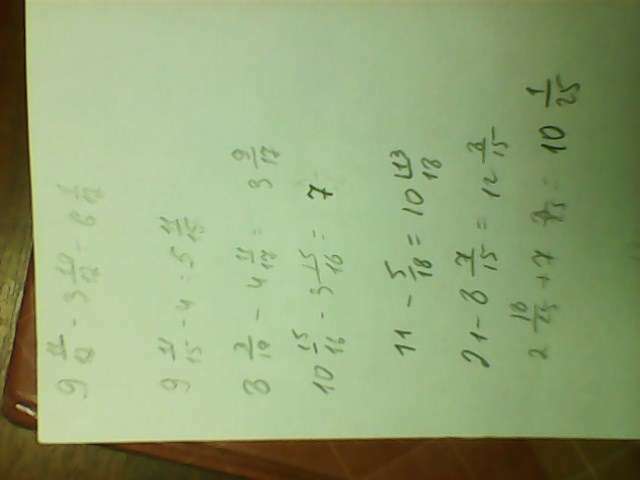 9 11/12 - 3 10/12 = 6 1/12
9 11/15 - 4 = 5 11/15
8 - 4 11/17 = 3 9/17
10 15/16 - 3 15/16 = 7
11 - 5/18 = 10 13/18
21 - 8 7/15 = 12 8/15
2 18/25 + 7 = 10 1/25